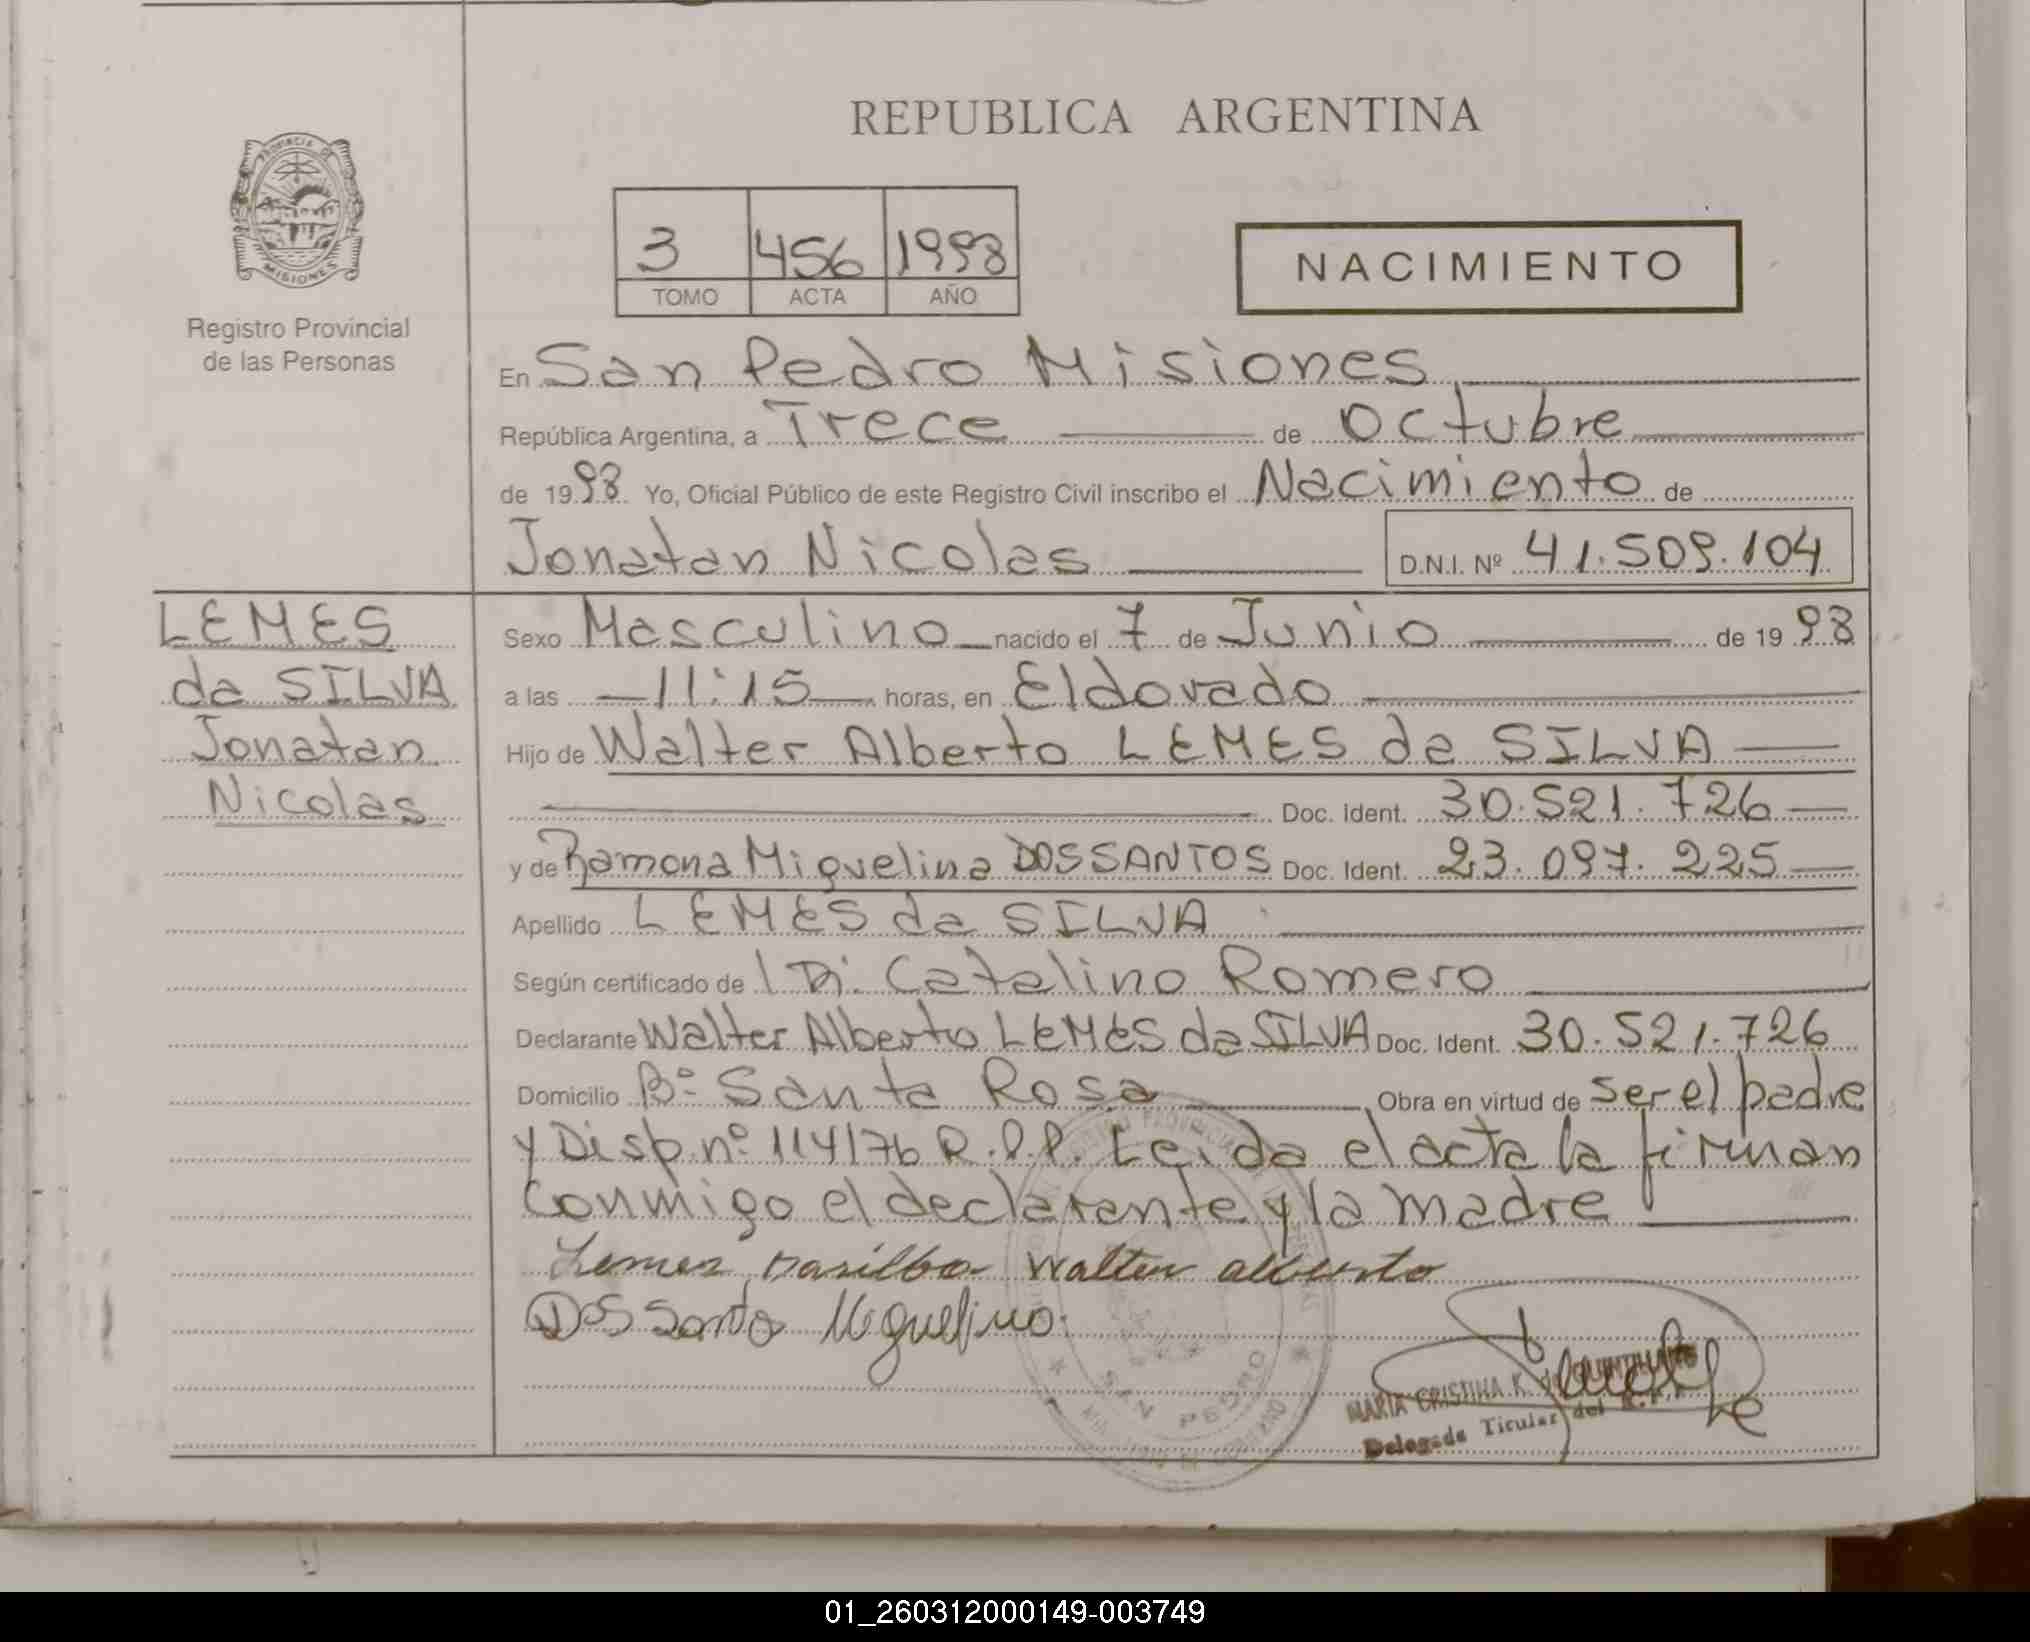 REPUBLICA ARGENTINA
PROVINCIA DE
MISIONES
Registro Provincial
de las Personas
3 456 1998
TOMO ACTA AÑO
NACIMIENTO
En San Pedro Misiones
República Argentina, a Trece de Octubre
de 1998 Yo, Oficial Público de este Registro Civil inscribo el Nacimiento de
Jonatan Nicolas D.N.I. Nº 41.509.104
LEMES
da SILVA
Jonatan
Nicolas
Sexo Masculino nacido el 7 de Junio de 1998
a las 11:15 horas, en Eldorado
Hijo de Walter Alberto LEMES da SILVA
Doc. Ident. 30.521.726
y de Ramona Miguelina DOS SANTOS Doc. Ident. 23.097.225
Apellido LEMES da SILVA
Según certificado de Dr. Catalino Romero
Declarante Walter Alberto LEMES da SILVA Doc. Ident. 30.521.726
Domicilio Bº Santa Rosa Obra en virtud de ser el padre
y Disp. nº 114/76 R.P.P. Leida el acta la firman
conmigo el declarante y la madre
Lemes dasilba Walter alberto
Dos Santo Miguelina
SAN PEDRO
MARIA CRISTINA K. de QUINTANA
Delegada Titular del R.P.P.
01_260312000149-003749